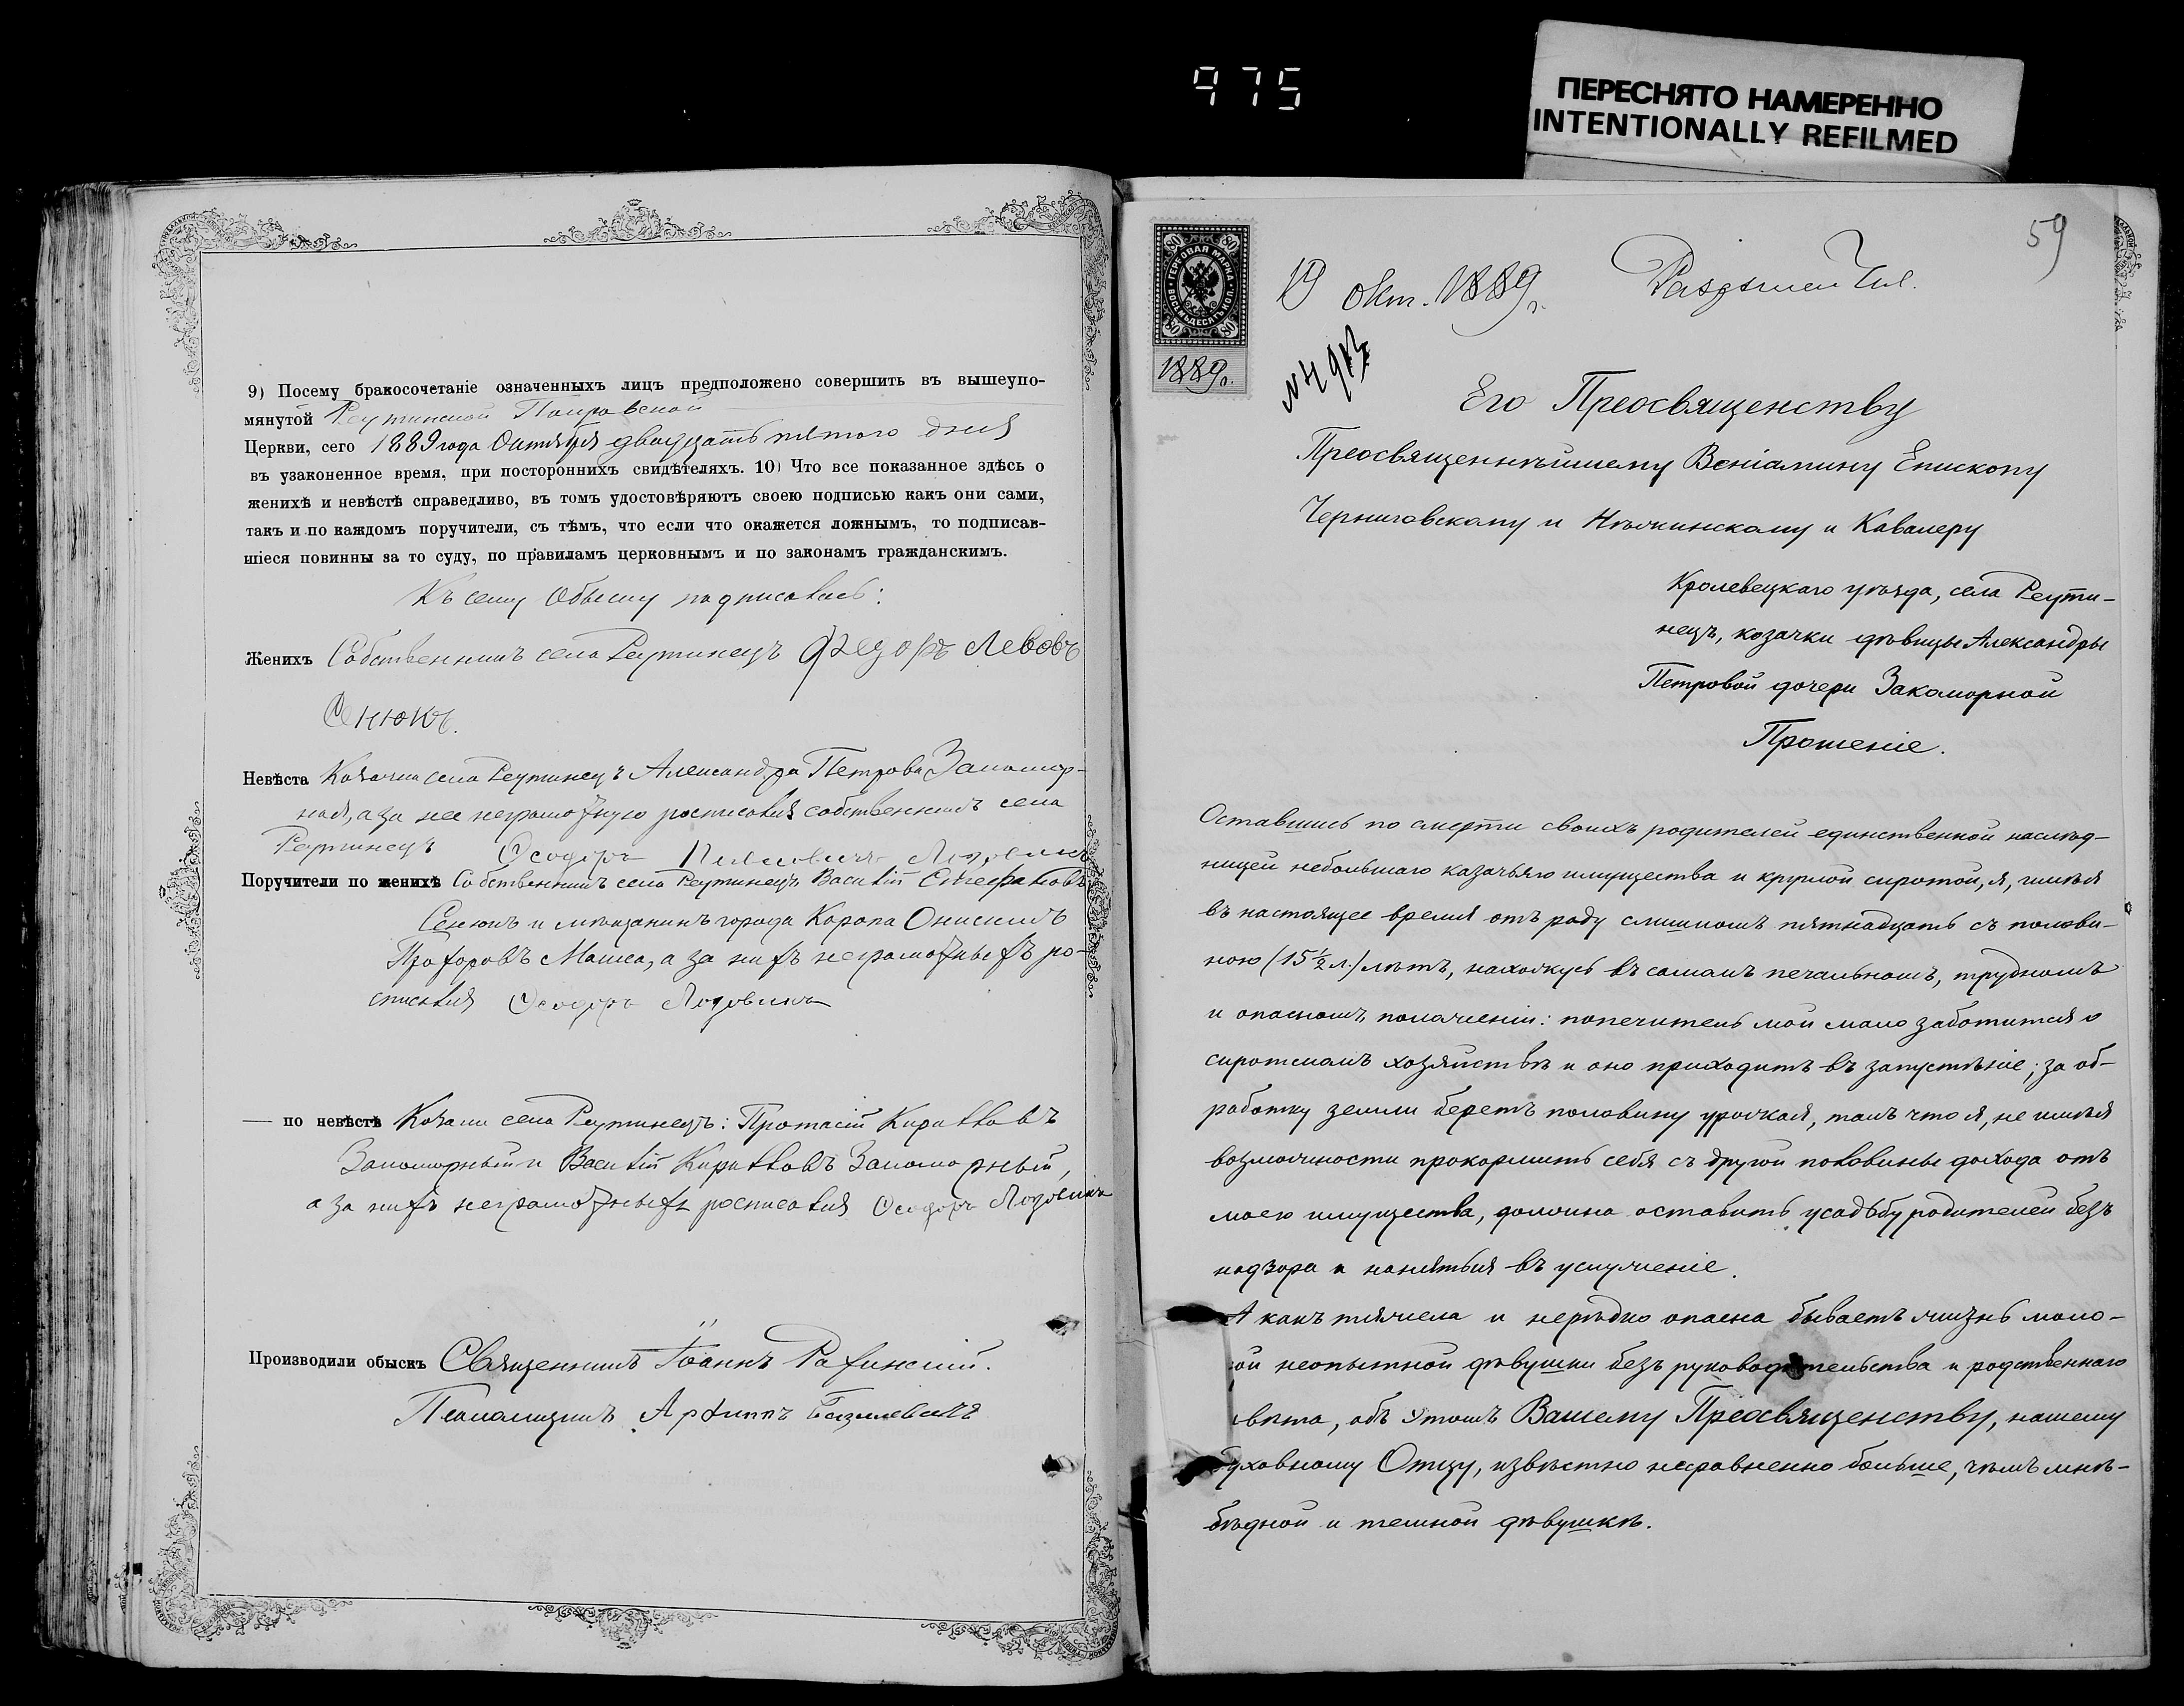 975
ПЕРЕСНЯТО НАМЕРЕННО
INTENTIONALLY REFILMED
9) Посему бракосочетаніе означенныхъ лицъ предположено совершить въ вышеупо-
мянутой Реутинской Покровской
Церкви, сего 1889 года Октября двадцать пятого дня
въ узаконенное время, при постороннихъ свидѣтеляхъ. 10) Что все показанное здѣсь о
женихѣ и невѣстѣ справедливо, въ томъ удостовѣряютъ своею подписью какъ они сами,
такъ и по каждомъ поручители, съ тѣмъ, что если что окажется ложнымъ, то подписав-
шіеся повинны за то суду, по правиламъ церковнымъ и по законамъ гражданскимъ.
Къ сему обыску подписались:
Женихъ Собственникъ села Реутинецъ Федоръ Левовъ
Сенюкъ.
Невѣста Козачка села Реутинецъ Александра Петрова Закомор-
ная, а за нее неграмотную росписался собственникъ села
Реутинецъ Ѳеодоръ Лозовикъ
Поручители по женихѣ Собственникъ села Реутинецъ Василій Стефановъ
Сенюкъ и мѣщанинъ города Коропа Онисимъ
Прохоровъ Мошка, а за нихъ неграмотныхъ ро-
списался Ѳеодоръ Лозовикъ
— по невѣстѣ Козаки села Реутинецъ: Протасій Кирилловъ
Закоморный и Василій Кирилловъ Закоморный,
а за нихъ неграмотныхъ росписался Ѳеодоръ Лозовикъ
Производили обыскъ Священникъ Іоаннъ Рахинскій.
Псаломщикъ Архиппъ Базилевичъ
59
80 80
ГЕРБОВАЯ МАРКА
ВОСЕМЬДЕСЯТЪ КОП.
80 80
1889 г.
19 окт. 1889 г.
Его Преосвященству
Преосвященнѣйшему Веніамину Епископу
Черниговскому и Нѣжинскому и Кавалеру
Кролевецкаго уѣзда, села Реути-
нецъ, козачки дѣвицы Александры
Петровой дочери Закоморной
Прошеніе.
Оставшись по смерти своихъ родителей единственной наслѣд-
ницей небольшаго казачьяго имущества и круглой сиротой, я, имѣя
въ настоящее время отъ роду слишкомъ пятнадцать съ полови-
ною (15 ½ л.) лѣтъ, нахожусь въ самомъ печальномъ, трудномъ
и опасномъ положеніи: попечитель мой мало заботится о
сиротскомъ хозяйствѣ и оно приходитъ въ запустѣніе; за об-
работку земли беретъ половину урожая, такъ что я, не имѣя
возможности прокормить себя съ другой половины дохода отъ
моего имущества, должна оставить усадьбу родителей безъ
надзора и наняться въ услуженіе.
А какъ тяжела и нерѣдко опасна бываетъ жизнь моло-
ой неопытной дѣвушки безъ руководительства и родственнаго
вѣта, объ этомъ Вашему Преосвященству, нашему
духовному Отцу, извѣстно несравненно больше, чѣмъ мнѣ-
бѣдной и темной дѣвушкѣ.